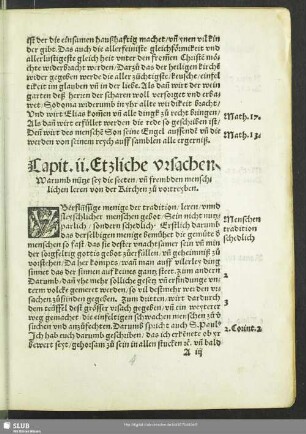 ist der die einsamen haußhafftig machet/ vñ ynen vil kin
der gibt. Das auch die allerfeinste gleichförmikeit vnd
allerlustigeste gleich heit vnter den frommen Christē möch
te widerbracht werden/ Darzů das der heiligen kirchē
wider gegeben werde die aller züchtigste/ keusche/ einfel
tikeit im glauben vñ in der liebe. Als dañ wirt der wein
garten deß herrn der scharen woll versorget vnd erbau
wet/ Sodoma widerumb in yhr allte wirdikeit bracht/
Vnd wirt Elias komen vñ alle dingk zů recht bringen/
Als dañ wirt erfüllet werden die rede so geschriben ist/
Dañ wirt des menschē Son seine Engel außsendē vñ die
werden von seinem reych auff samblen alle ergerniß.
Math. 17.
Math. 13.
Capit. ii. Etzliche vrsachen/
Warumb nütze sey die secten/ vñ frembden mensch
lichen leren von der Kirchen zů vortreyben.
VBerflüssige menige der tradition/ leren/ vnnd
fleyschlicher menschen gebot/ Sein nicht nutz
parlich/ sondern schedlich: Erstlich darumb
das derselbigen menige bemühet die gemůte d
menschen so fast/ das sie dester vnachtsamer sein vñ min
der sorgfeltig gottis gebot zůerfüllen/ vñ geheimniß zů
vorstehen/ Da her kompts/ wañ man auff vilerley ding
sinnet das der sinnen auff keines gantz stett. Zum andern
Darumb/ dañ yhe mehr sölliche gesetz vñ erfindunge vn/
term volcke gemeret werden/ so vil dest mehr werden vr
sachen zů sünden gegeben. Zum dritten/ wirt dardurch
dem teüffel dest grösser vrsach gegeben/ vnd ein weyterer
weg gemachet/ die einfeltigen schwachen menschen zů ö
suchen vnd anzůfechten. Darumb spricht auch S. Pauls
Jch hab euch darumb geschriben/ das ich erkenete ob yr
bewert seyt/ gehorsam zů sein in allen stucken ꝛc. vñ bald
Menschen
tradition
schedlich
2
3
2. Corint. 2.
A iij
4
SLUB